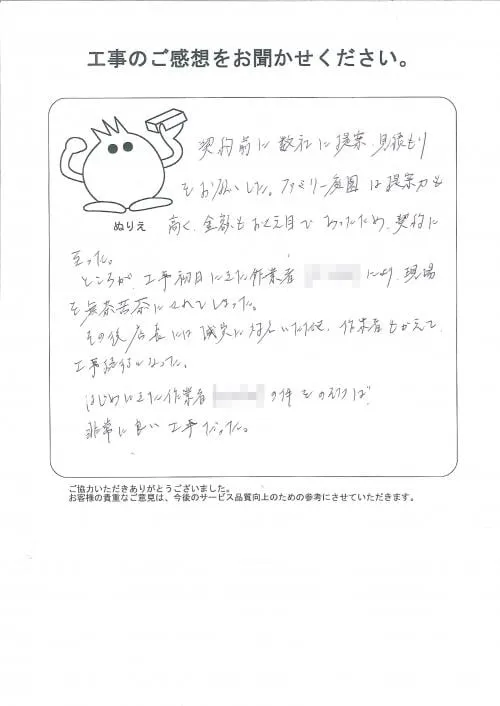 工事のご感想をお聞かせください。
契約前に数社に提案、見積もり
をお願いした。ファミリー庭園は提案力も
高く、金額もおさえ目であったため、契約に
至った。
ところが、工事初日にきた作業者 により、現場
を無茶苦茶にされてしまった。
その後店長には誠実に対応いただき、作業者もかえて、
工事続行となった。
はじめにきた作業者 の件をのぞけば
非常に良い工事だった。
ぬりえ
ご協力いただきありがとうございました。
お客様の貴重なご意見は、今後のサービス品質向上のための参考にさせていただきます。